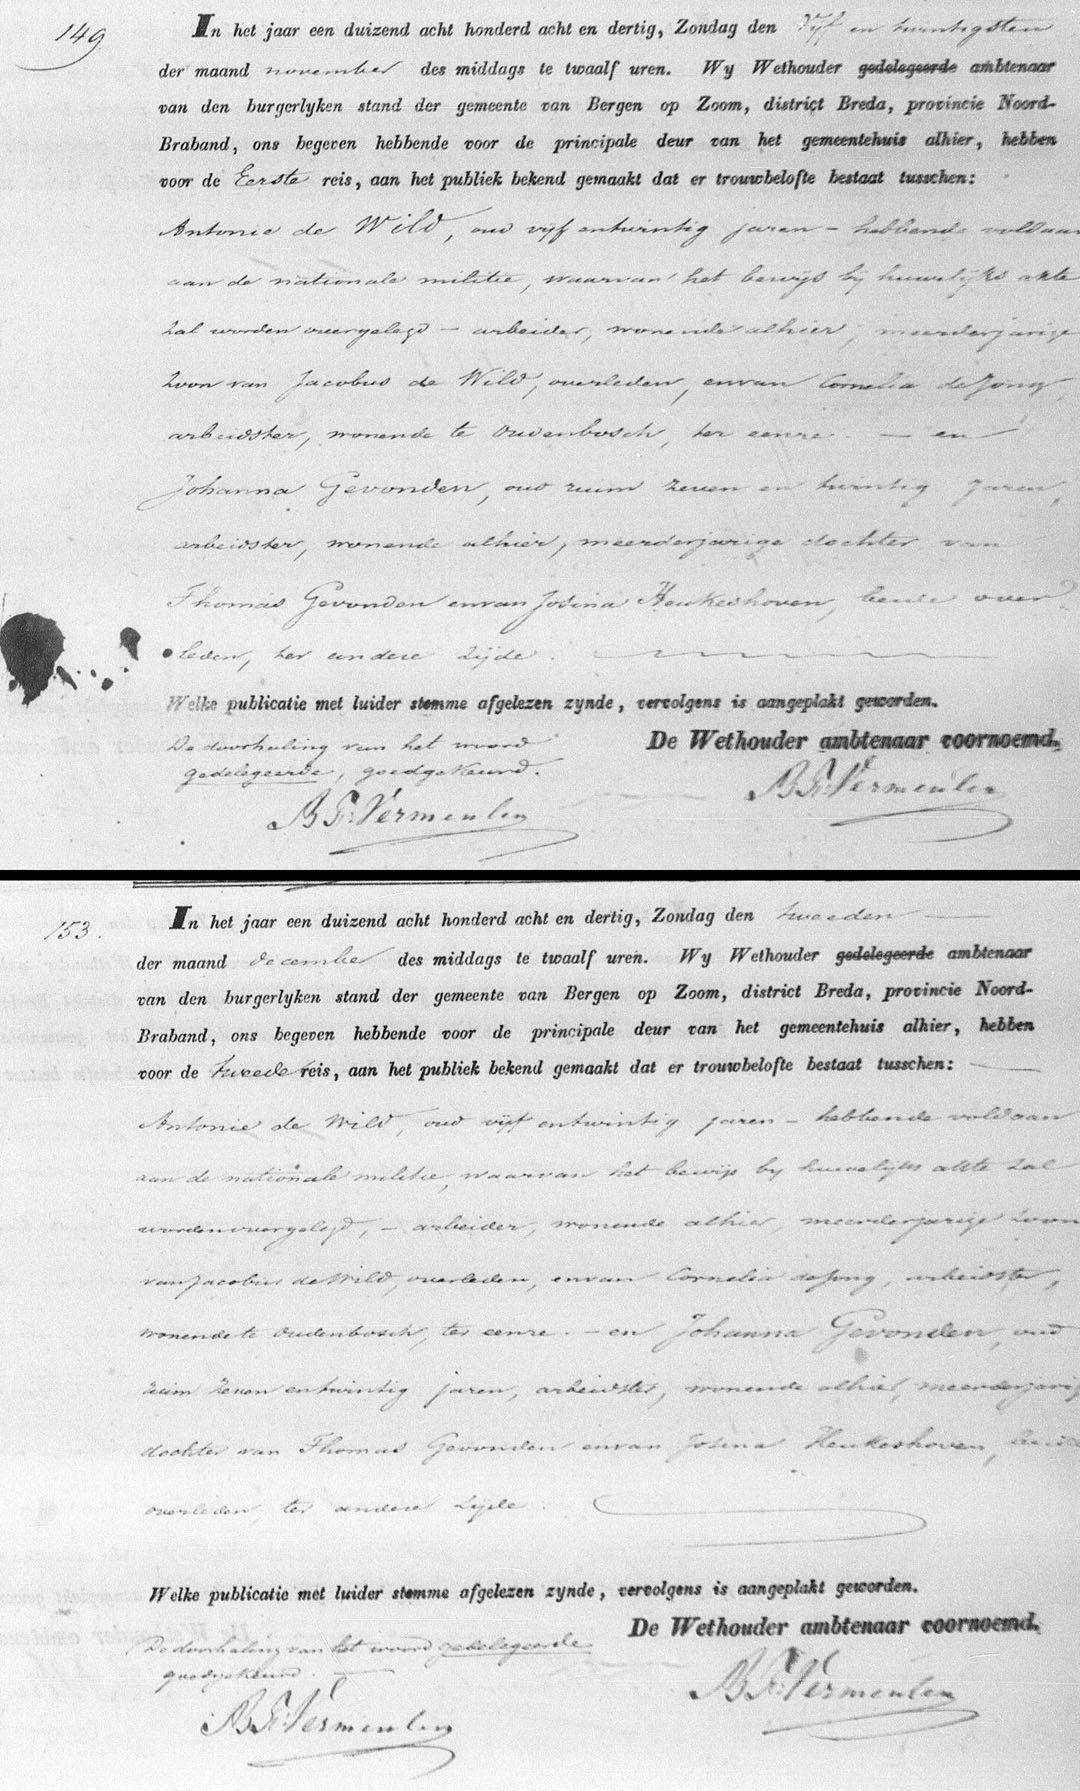 149
In het jaar een duizend acht honderd acht en dertig, Zondag den Vijf en twintigsten
der maand november des middags te twaalf uren. Wy Wethouder gedelegeerde ambtenaar
van den burgerlyken stand der gemeente van Bergen op Zoom, district Breda, provincie Noord-
Braband, ons begeven hebbende voor de principale deur van het gemeentehuis alhier, hebben
voor de Eerste reis, aan het publiek bekend gemaakt dat er trouwbelofte bestaat tusschen:
Antonie de Wild, oud vijf entwintig jaren - hebbende voldaan
aan de nationale militie, waarvan het bewijs bij huwelijks akte
zal worden overgelegd - arbeider, wonende alhier, meerderjarige
zoon van Jacobus de Wild, overleden, envan Cornelia de Jong,
arbeidster, wonende te Oudenbosch, ter eenre. - en
Johanna Gevonden, oud ruim zeven en twintig jaren,
arbeidster, wonende alhier, meerderjarige dochter van
Thomas Gevonden envan Josina Heukeshoven, beide over
leden, ter andere zijde.
Welke publicatie met luider stemme afgelezen zynde, vervolgens is aangeplakt geworden.
De doorhaling van het woord
gedelegeerde, goedgekeurd.
De Wethouder ambtenaar voornoemd.
B Fr. Vermeulen
B Fr. Vermeulen
153.
In het jaar een duizend acht honderd acht en dertig, Zondag den tweeden
der maand december des middags te twaalf uren. Wy Wethouder gedelegeerde ambtenaar
van den burgerlyken stand der gemeente van Bergen op Zoom, district Breda, provincie Noord-
Braband, ons begeven hebbende voor de principale deur van het gemeentehuis alhier, hebben
voor de tweede reis, aan het publiek bekend gemaakt dat er trouwbelofte bestaat tusschen:
Antonie de Wild, oud vijf entwintig jaren - hebbende voldaan
aan de nationale militie, waarvan het bewijs by huwelijks akte zal
worden overgelegd, - arbeider, wonende alhier, meerderjarige zoon
van Jacobus de Wild, overleden, envan Cornelia de Jong, arbeidster,
wonende te Oudenbosch, ter eenre. - en Johanna Gevonden, oud
ruim zeven entwintig jaren, arbeidster, wonende alhier, meerderjarige
dochter van Thomas Gevonden envan Josina Heukeshoven, beide
overleden, ter andere zijde.
Welke publicatie met luider stemme afgelezen zynde, vervolgens is aangeplakt geworden.
De doorhaling van het woord gedelegeerde
goedgekeurd.
De Wethouder ambtenaar voornoemd.
B Fr. Vermeulen
B Fr. Vermeulen